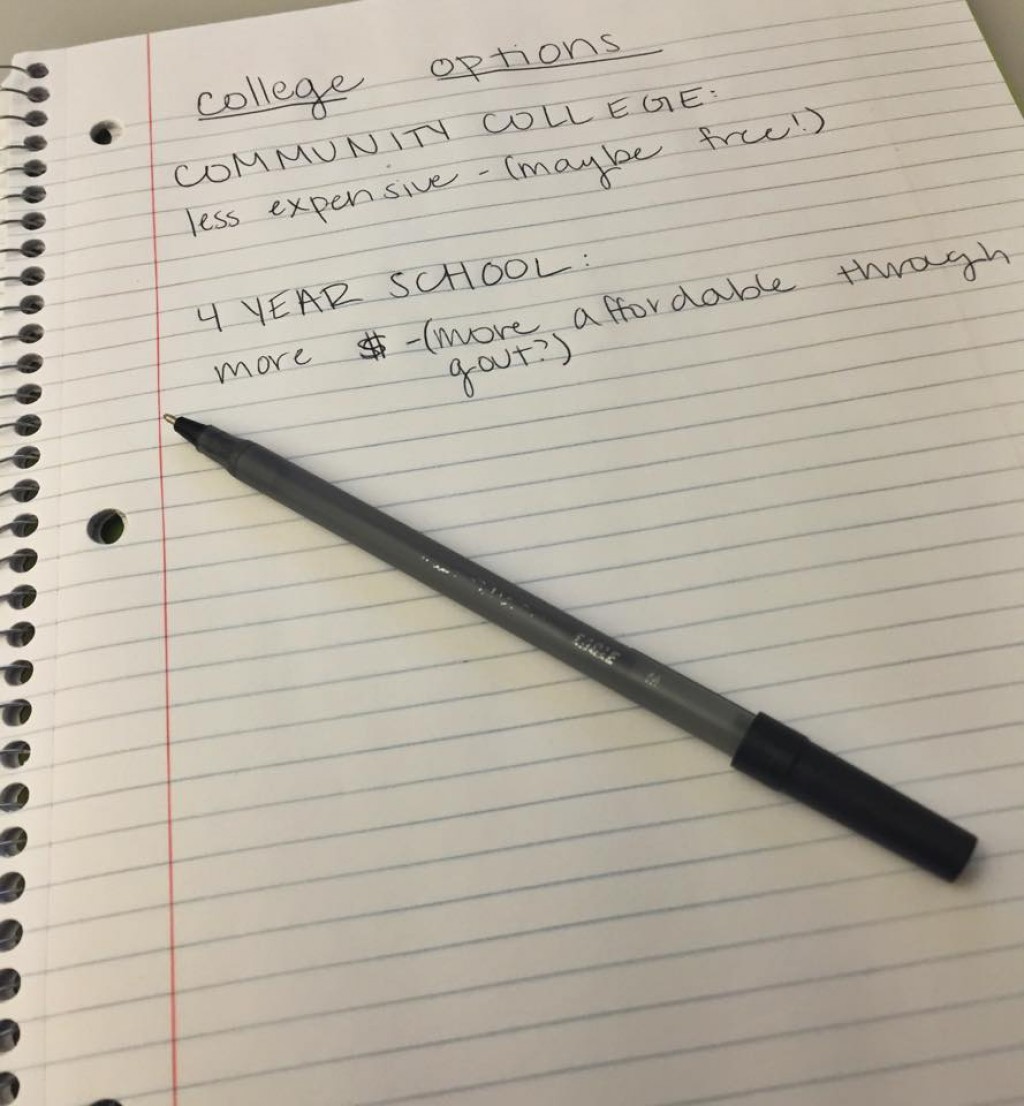 college options
COMMUNITY COLLEGE:
less expensive - (maybe free!)
4 YEAR SCHOOL:
more $ - (more affordable through
govt?)
EAGLE